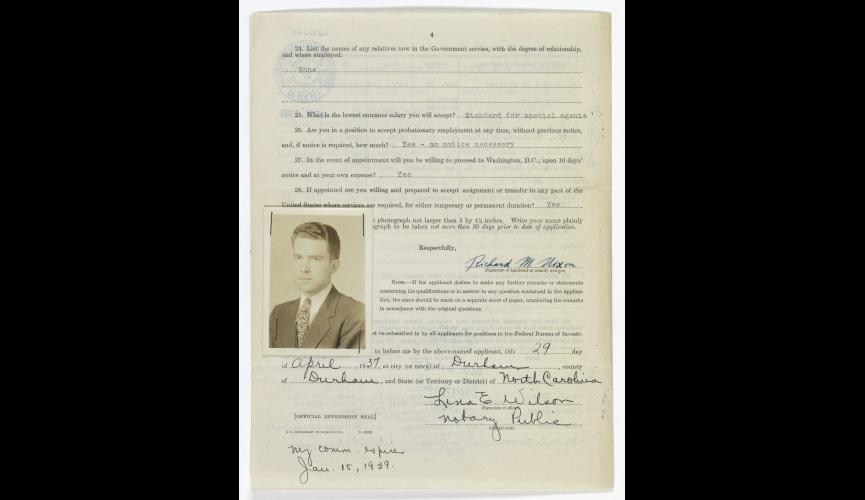 4
24. List the names of any relatives now in the Government service, with the degree of relationship,
and where employed:
None
25. What is the lowest entrance salary you will accept? Standard for special agents
26. Are you in a position to accept probationary employment at any time, without previous notice,
and, if notice is required, how much? Yes - no notice necessary
27. In the event of appointment will you be willing to proceed to Washington, D.C., upon 10 days'
notice and at your own expense? Yes
28. If appointed are you willing and prepared to accept assignment or transfer to any part of the
United States where services are required, for either temporary or permanent duration? Yes
photograph not larger than 3 by 4½ inches. Write your name plainly
graph to be taken not more than 30 days prior to date of application.
Respectfully,
Richard M. Nixon
(Signature of applicant as usually written)
NOTE.—If the applicant desires to make any further remarks or statements
concerning his qualifications or in answer to any question contained in the applica-
tion, the same should be made on a separate sheet of paper, numbering the remarks
in accordance with the original questions.
be subscribed to by all applicants for positions in the Federal Bureau of Investi-
to before me by the above-named applicant, this 29 day
of April, 1937, at city (or town) of Durham, county
of Durham, and State (or Territory or District) of North Carolina
Lena E. Wilson
(Signature of officer)
Notary Public
[OFFICIAL IMPRESSION SEAL]
My comm. expires
Jan. 15, 1939.